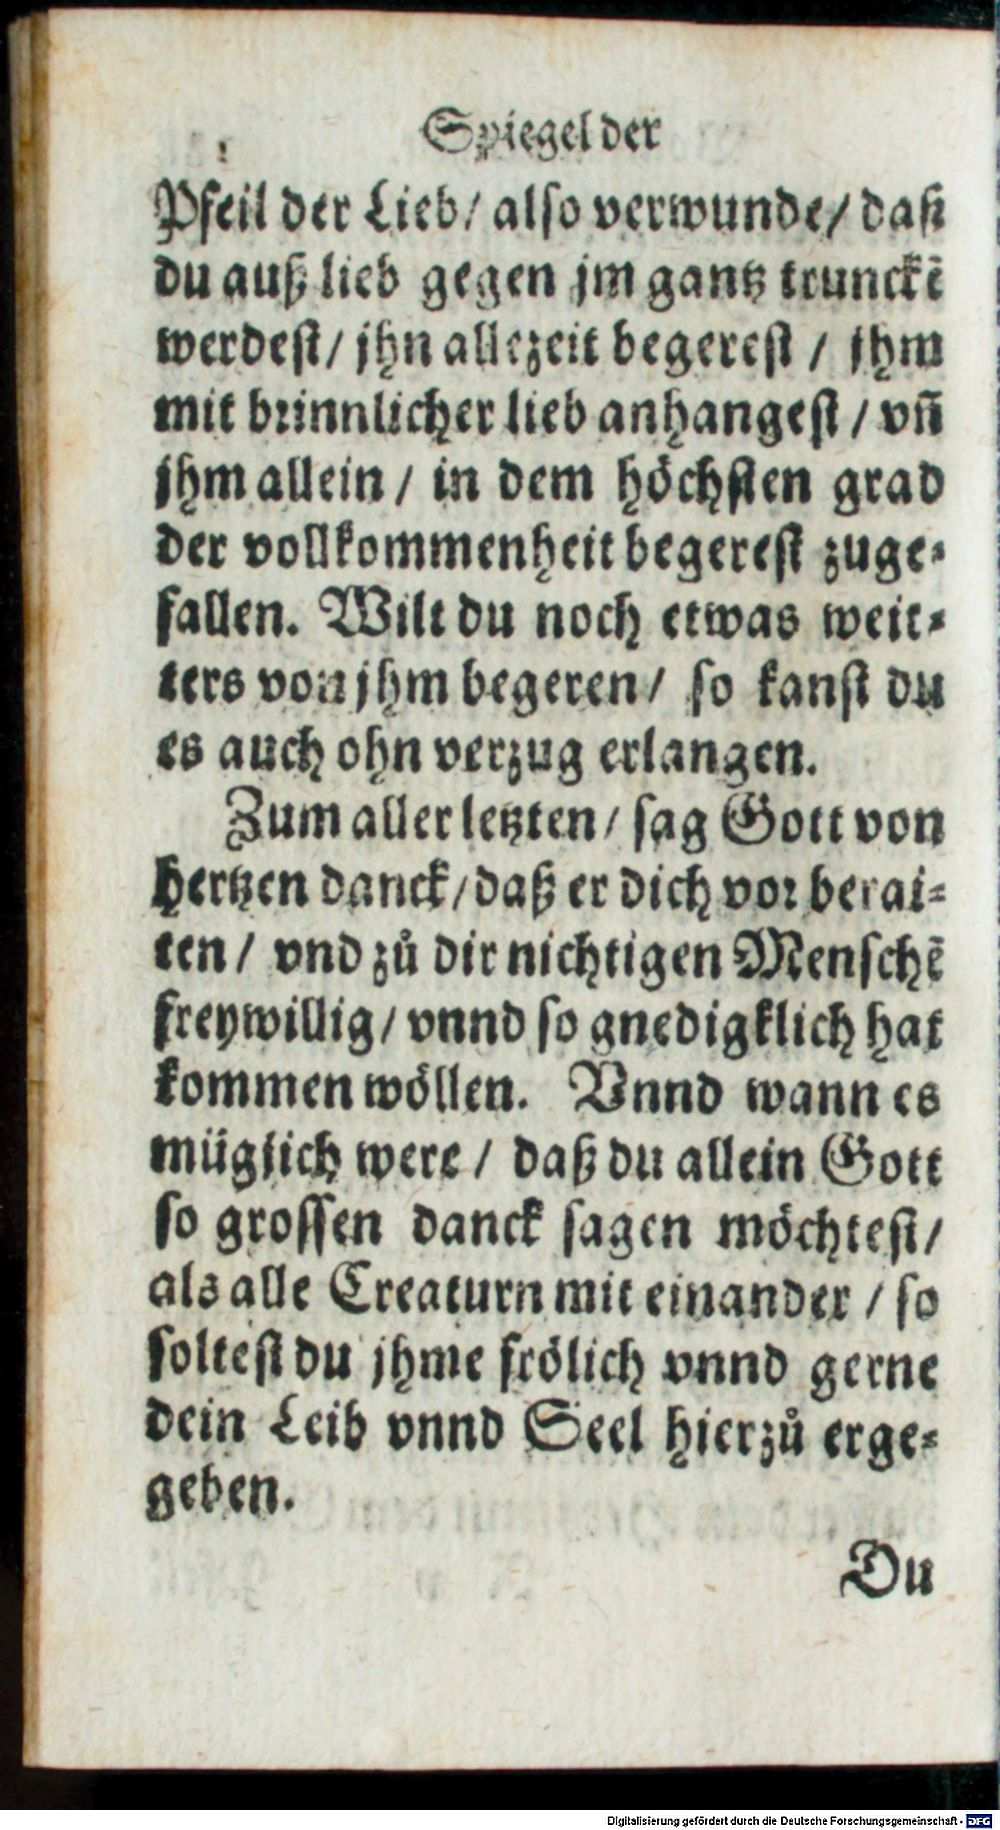 Spiegel der
Pfeil der Lieb/ also verwunde/ daß
du auß lieb gegen jm gantz trunckẽ
werdest/ jhn allezeit begerest / jhm
mit brinnlicher lieb anhangest / vñ
jhm allein / in dem höchsten grad
der vollkommenheit begerest zuge-
fallen. Wilt du noch etwas weit-
ters von jhm begeren/ so kanst du
es auch ohn verzug erlangen.
Zum aller letzten/ sag Gott von
hertzen danck/ daß er dich vor berai-
ten / vnd zů dir nichtigen Menschẽ
freywillig/ vnnd so gnedigklich hat
kommen wöllen. Vnnd wann es
müglich were / daß du allein Gott
so grossen danck sagen möchtest/
als alle Creaturn mit einander / so
soltest du jhme frölich vnnd gerne
dein Leib vnnd Seel hierzů erge-
geben.
Du
Digitalisierung gefördert durch die Deutsche Forschungsgemeinschaft - DFG